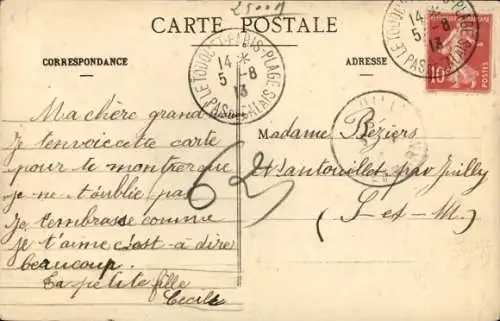 25009
CARTE POSTALE
CORRESPONDANCE
ADRESSE
LE TOUQUET-PARIS-PLAGE
14 *
5 -8
13
PAS DE CALAIS
14 *
5 -8
13
PAS
CALAIS
10
Ma chère grand
Je t'envoie cette carte
pour te montrer que
je ne t'oublie pas
Je t'embrasse comme
je t'aime c'est-à dire
beaucoup.
Ta petite fille
Cécile
62
Madame Béziers
Nantouillet par Juilly
S-et-M.